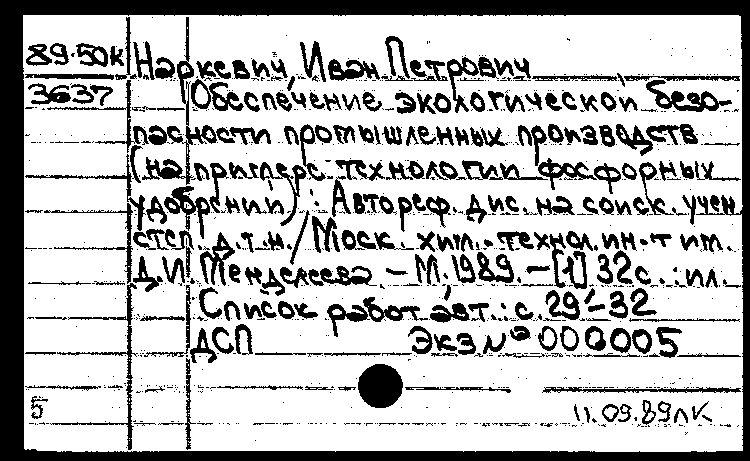 89-50к Наркевич, Иван Петрович
3637 Обеспечение экологической безо-
пасности промышленных производств
(на примере технологии фосфорных
удобрений) : Автореф. дис. на соиск. учен.
степ. д.т.н. / Моск. хим.-технол. ин-т им.
Д.И. Менделеева. – М. 1989. – [1] 32 с. : ил.
Список работ авт.: с. 29-32
ДСП Экз № 000005
5 11.09.89 ЛК